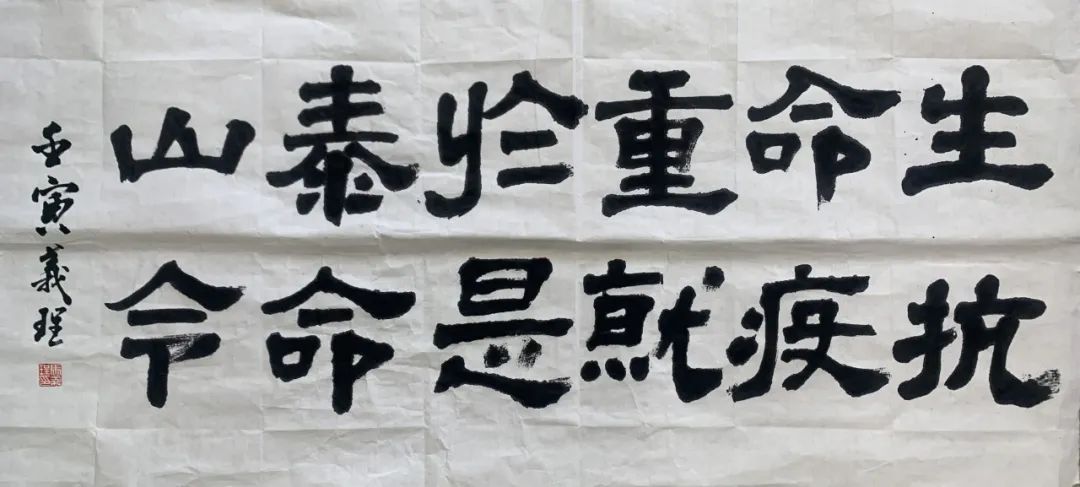 生命重於泰山
抗疫就是命令
壬寅義